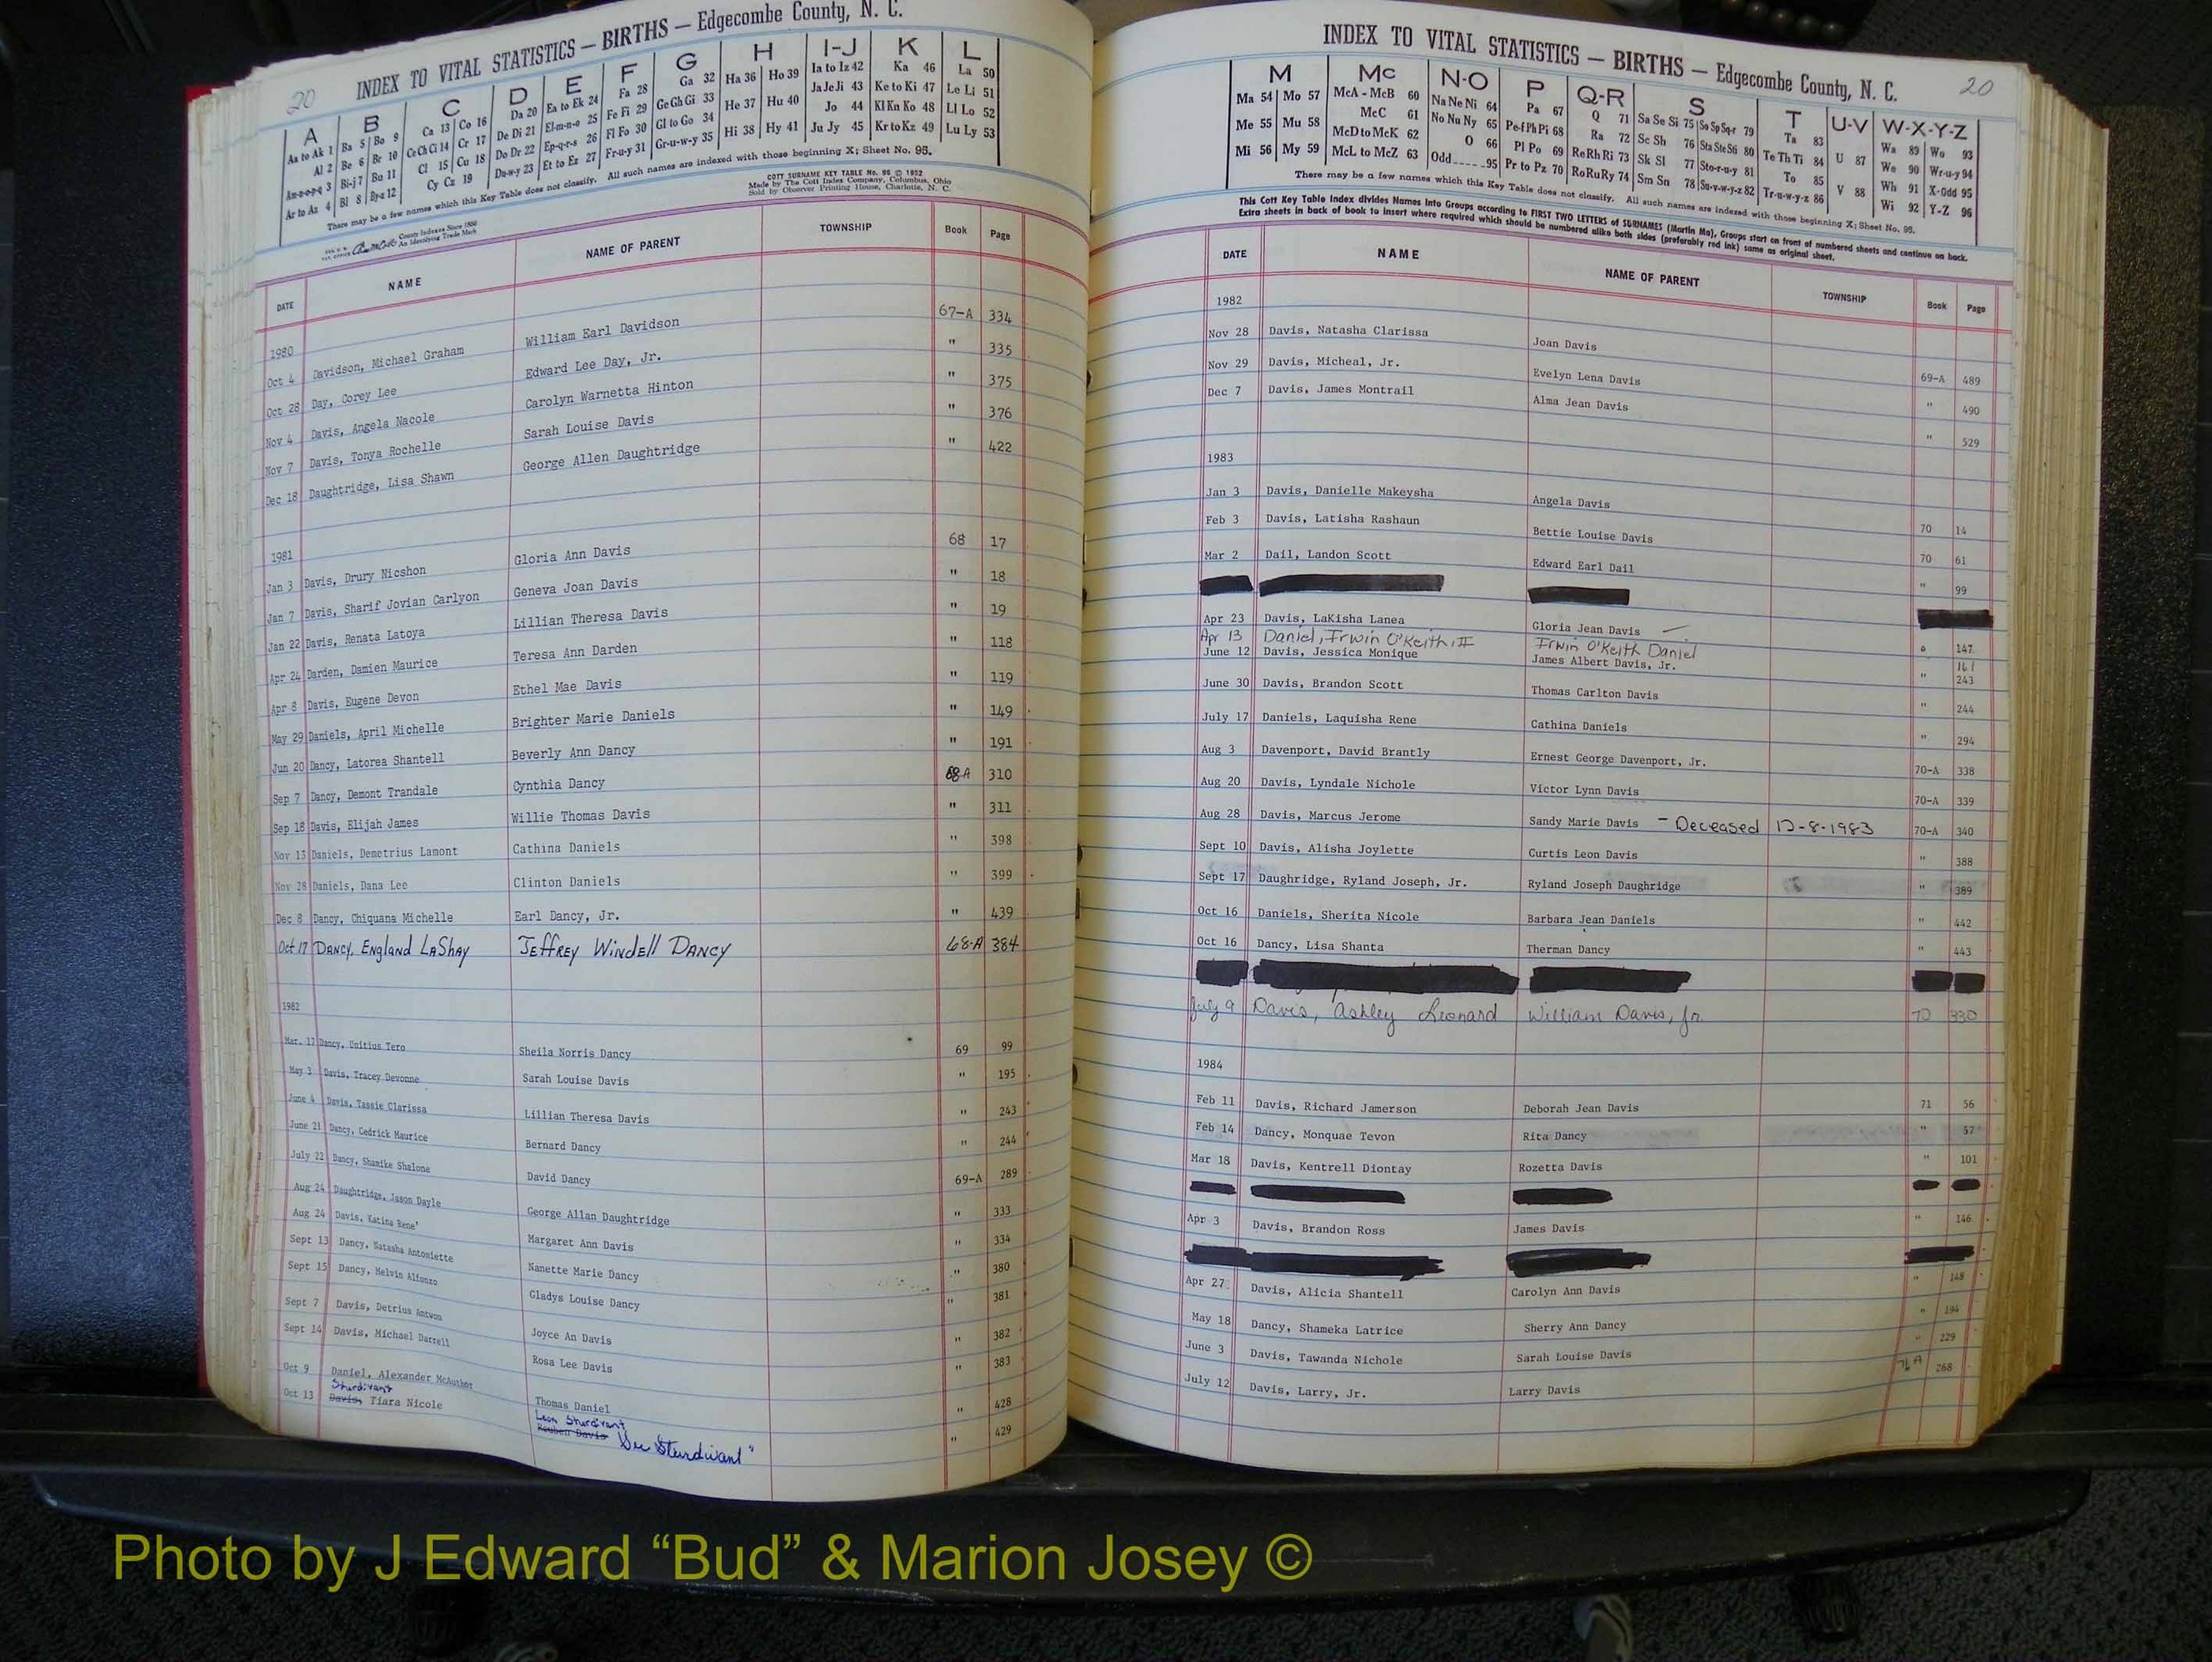 20 INDEX TO VITAL STATISTICS — BIRTHS — Edgecombe County, N. C.
A B C D E F G H I-J K L
Aa to Ak 1 Ba 5 Bo 9 Ca 13 Co 16 Da 20 Ea to Ek 24 Fa 28 Ga 32 Ha 36 Ho 39 Ia to Iz 42 Ka 46 La 50
Al 2 Be 6 Br 10 Ce Ch Ci 14 Cr 17 De Di 21 El-m-n-o 25 Fe Fi 29 Ge Gh Gi 33 He 37 Hu 40 Ja Je Ji 43 Ke to Ki 47 Le Li 51
Am-n-o-p-q 3 Bi-j 7 Bu 11 Cl 15 Cu 18 Do Dr 22 Ep-q-r-s 26 Fl Fo 30 Gl to Go 34 Hi 38 Hy 41 Jo 44 Kl Kn Ko 48 Ll Lo 52
Ar to Az 4 Bl 8 By-z 12 Cy Cz 19 Du-w-y 23 Et to Ez 27 Fr-u-y 31 Gr-u-w-y 35 Ju Jy 45 Kr to Kz 49 Lu Ly 53
There may be a few names which this Key Table does not classify. All such names are indexed with those beginning X; Sheet No. 95.
COTT SURNAME KEY TABLE No. 96 © 1952
Made by The Cott Index Company, Columbus, Ohio
Sold by Observer Printing House, Charlotte, N. C.
County Indexes Since 1888
An Identifying Trade Mark
DATE NAME NAME OF PARENT TOWNSHIP Book Page
1980
Oct 4 Davidson, Michael Graham William Earl Davidson 67-A 334
Oct 28 Day, Corey Lee Edward Lee Day, Jr. " 335
Nov 4 Davis, Angela Nacole Carolyn Warnetta Hinton " 375
Nov 7 Davis, Tonya Rochelle Sarah Louise Davis " 376
Dec 18 Daughtridge, Lisa Shawn George Allen Daughtridge " 422
1981
Jan 3 Davis, Drury Nicshon Gloria Ann Davis 68 17
Jan 7 Davis, Sharif Jovian Carlyon Geneva Joan Davis " 18
Jan 22 Davis, Renata Latoya Lillian Theresa Davis " 19
Apr 24 Darden, Damien Maurice Teresa Ann Darden " 118
Apr 8 Davis, Eugene Devon Ethel Mae Davis " 119
May 29 Daniels, April Michelle Brighter Marie Daniels " 149
Jun 20 Dancy, Latorea Shantell Beverly Ann Dancy " 191
Sep 7 Dancy, Demont Trandale Cynthia Dancy 68A 310
Sep 18 Davis, Elijah James Willie Thomas Davis " 311
Nov 13 Daniels, Demetrius Lamont Cathina Daniels " 398
Nov 28 Daniels, Dana Lee Clinton Daniels " 399
Dec 8 Dancy, Chiquana Michelle Earl Dancy, Jr. " 439
Oct 17 DANCY, ENGlANd LAShAy JEffREY WiNdEll DANCY 68-A 384
1982
Mar. 17 Dancy, Unitius Tero Sheila Norris Dancy 69 99
May 3 Davis, Tracey Devonne Sarah Louise Davis " 195
June 4 Davis, Tassie Clarissa Lillian Theresa Davis " 243
June 21 Dancy, Cedrick Maurice Bernard Dancy " 244
July 22 Dancy, Shamike Shalone David Dancy 69-A 289
Aug 24 Daughtridge, Jason Dayle George Allan Daughtridge " 333
Aug 24 Davis, Katina Rene' Margaret Ann Davis " 334
Sept 13 Dancy, Natasha Antoniette Nanette Marie Dancy " 380
Sept 15 Dancy, Melvin Alfonzo Gladys Louise Dancy " 381
Sept 7 Davis, Detrius Antwon Joyce An Davis " 382
Sept 14 Davis, Michael Darrell Rosa Lee Davis " 383
Oct 9 Daniel, Alexander McAuthor Thomas Daniel " 428
Sturdivant Leon Sturdivant
Oct 13 Davis, Tiara Nicole Reuben Davis See Sturdivant" " 429
INDEX TO VITAL STATISTICS — BIRTHS — Edgecombe County, N. C. 20
M Mc N-O P Q-R S T U-V W-X-Y-Z
Ma 54 Mo 57 McA - McB 60 Na Ne Ni 64 Pa 67 Q 71 Sa Se Si 75 So Sp Sq-r 79 Ta 83 Wa 89 Wo 93
Me 55 Mu 58 McC 61 No Nu Ny 65 Pe-f Ph Pi 68 Ra 72 Sc Sh 76 Sta Ste Sti 80 Te Th Ti 84 U 87 We 90 Wr-u-y 94
Mi 56 My 59 McD to McK 62 O 66 Pl Po 69 Re Rh Ri 73 Sk Sl 77 Sto-r-u-y 81 To 85 Wh 91 X-Odd 95
McL to McZ 63 Odd 95 Pr to Pz 70 Ro Ru Ry 74 Sm Sn 78 Su-v-w-y-z 82 Tr-u-w-y-z 86 V 88 Wi 92 Y-Z 96
There may be a few names which this Key Table does not classify. All such names are indexed with those beginning X; Sheet No. 95.
This Cott Key Table Index divides Names into Groups according to FIRST TWO LETTERS of SURNAMES (Martin Ma), Groups start on front of numbered sheets and continue on back.
Extra sheets in back of book to insert where required which should be numbered alike both sides (preferably red ink) same as original sheet.
DATE NAME NAME OF PARENT TOWNSHIP Book Page
1982
Nov 28 Davis, Natasha Clarissa Joan Davis 69-A 489
Nov 29 Davis, Micheal, Jr. Evelyn Lena Davis " 490
Dec 7 Davis, James Montrail Alma Jean Davis " 529
1983
Jan 3 Davis, Danielle Makeysha Angela Davis 70 14
Feb 3 Davis, Latisha Rashaun Bettie Louise Davis 70 61
Mar 2 Dail, Landon Scott Edward Earl Dail " 99
Apr 23 Davis, LaKisha Lanea Gloria Jean Davis 147
Apr 13 Daniel, Irwin O'Keith, II Irwin O'Keith Daniel 161
June 12 Davis, Jessica Monique James Albert Davis, Jr. " 243
June 30 Davis, Brandon Scott Thomas Carlton Davis " 244
July 17 Daniels, Laquisha Rene Cathina Daniels " 294
Aug 3 Davenport, David Brantly Ernest George Davenport, Jr. 70-A 338
Aug 20 Davis, Lyndale Nichole Victor Lynn Davis 70-A 339
Aug 28 Davis, Marcus Jerome Sandy Marie Davis - Deceased 12-8-1983 70-A 340
Sept 10 Davis, Alisha Joylette Curtis Leon Davis " 388
Sept 17 Daughridge, Ryland Joseph, Jr. Ryland Joseph Daughridge " 389
Oct 16 Daniels, Sherita Nicole Barbara Jean Daniels " 442
Oct 16 Dancy, Lisa Shanta Therman Dancy " 443
July 9 Davis, Ashley Leonard William Davis, Jr. 70 330
1984
Feb 11 Davis, Richard Jamerson Deborah Jean Davis 71 56
Feb 14 Dancy, Monquae Tevon Rita Dancy " 57
Mar 18 Davis, Kentrell Diontay Rozetta Davis " 101
Apr 3 Davis, Brandon Ross James Davis " 146
Apr 27 Davis, Alicia Shantell Carolyn Ann Davis " 148
May 18 Dancy, Shameka Latrice Sherry Ann Dancy " 194
June 3 Davis, Tawanda Nichole Sarah Louise Davis " 229
July 12 Davis, Larry, Jr. Larry Davis 268
Photo by J Edward “Bud” & Marion Josey ©